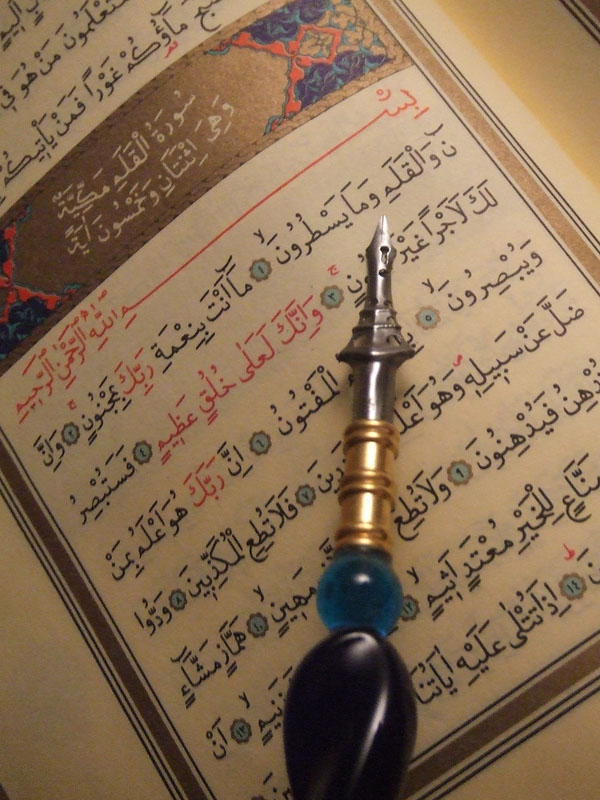 فَسَتَعْلَمُونَ مَنْ هُوَ فِى
مَٓاؤُكُمْ غَوْراً فَمَنْ يَأْتِيكُمْ
سُورَةُ الْقَلَمِ مَكِّيَّةٌ
وَهِىَ اِثْنَتَانِ وَخَمْسُونَ اٰيَةً
بِسْمِ اللّٰهِ الرَّحْمٰنِ الرَّحِيمِ
نٓ وَالْقَلَمِ وَمَا يَسْطُرُونَ ١ مَٓا اَنْتَ بِنِعْمَةِ رَبِّكَ بِمَجْنُونٍ ٢ وَاِنَّ
لَكَ لَاَجْراً غَيْرَ ٣ وَاِنَّكَ لَعَلٰى خُلُقٍ عَظِيمٍ ٤ فَسَتُبْصِرُ
وَيُبْصِرُونَ ٥ الْمَفْتُونُ ٦ اِنَّ رَبَّكَ هُوَ اَعْلَمُ بِمَنْ
ضَلَّ عَنْ سَبِيلِهِ وَهُوَ ٧ فَلَا تُطِعِ الْمُكَذِّبِينَ ٨ وَدُّوا
فَيُدْهِنُونَ ٩ وَلَا تُطِعْ مَهِينٍ ١٠ هَمَّازٍ مَشَّٓاءٍ
لِلْخَيْرِ مُعْتَدٍ اَثِيمٍ ١٢ زَنِيمٍ ١٣ اَنْ
اِذَا تُتْلٰى عَلَيْهِ اٰيَاتُنَا